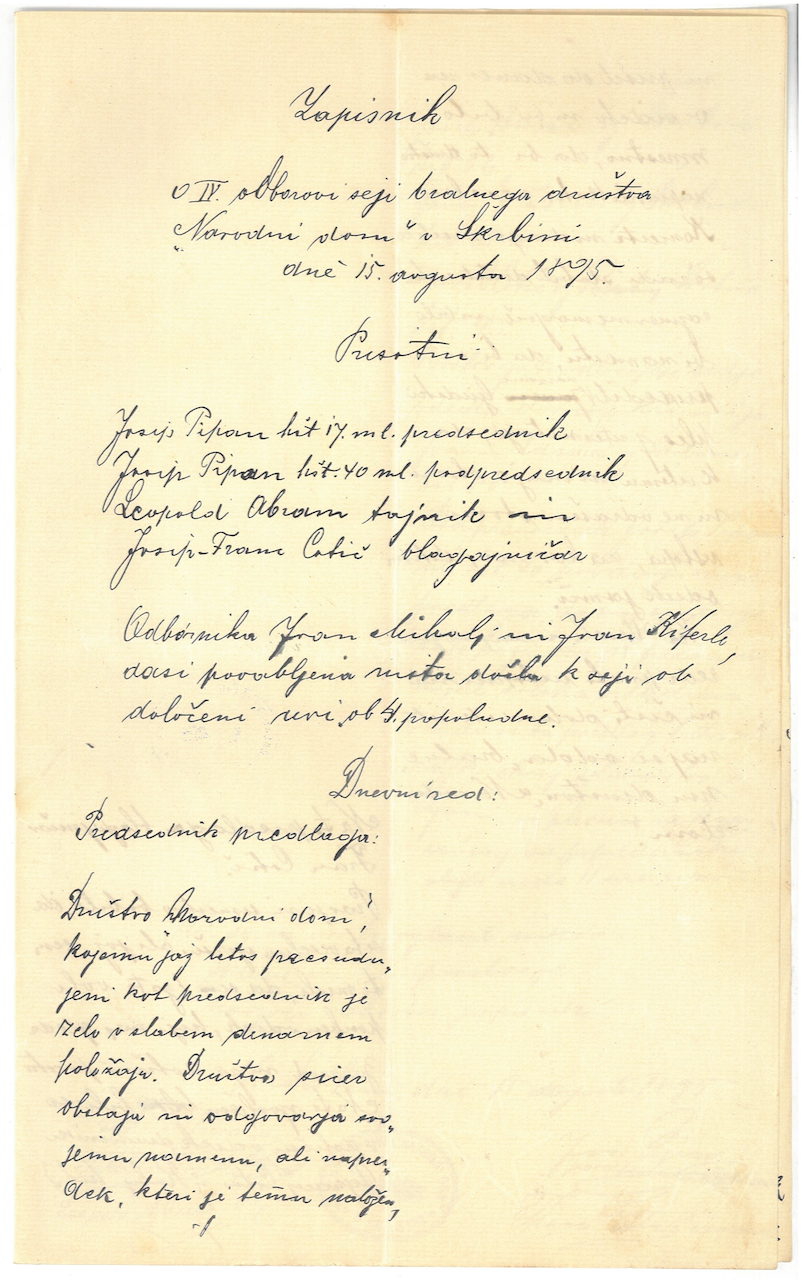 Zapisnik
o IV. odborovi seji bralnega društva
"Narodni dom" v Škrbini
dné 15. avgusta 1895.
Prisotni
Josip Pipan hšt 17. ml. predsednik
Josip Pipan hšt. 40 ml. podpredsednik
Leopold Abram tajnik in
Josip-Franc Cotič blagajničar
Odbórnika Ivan Mihalj in Ivan Kiferle,
dasi povabljena nista došla k seji ob
določeni uri, ob 4. popoludne.
Dnevni red:
Predsednik predlaga:
Društvo "Narodni dom",
kojemu jaz letos predsedu„
jem kot predsednik je
zelo v slabem denarnem
položaju. Društvo sicer
obstaja in odgovarja svo„
jemu namenu, ali napre„
dek, kteri je temu naložen,